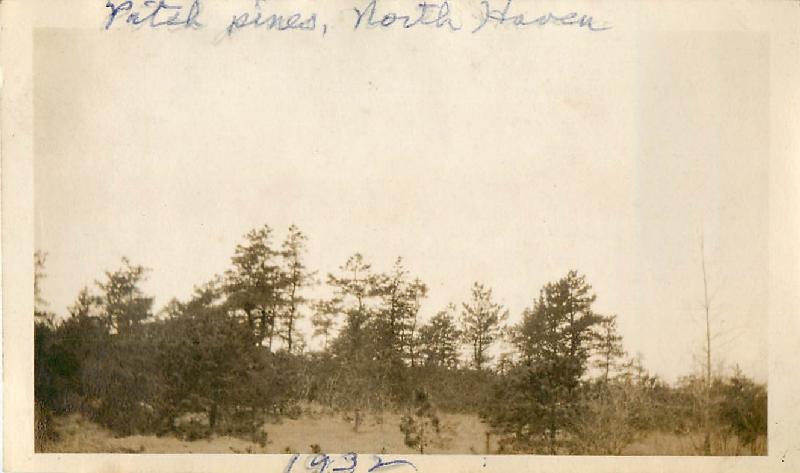 Pitch pines, North Haven
1932